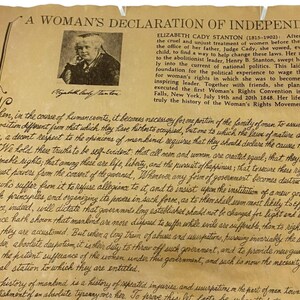 A WOMAN'S DECLARATION OF INDEPEN
ELIZABETH CADY STANTON (1815-1902). After
the cruel and unjust treatment of women before the
office of her father, Judge Cady, she vowed, even
child, to find a way to change these laws. Her
to the abolitionist leader, Henry B. Stanton, swept
into the current of national politics. This laid
foundation for the political experience to wage
for women's rights in which she was to become
inspiring leader. Together with friends, she plan
executed the first Woman's Rights Convention in
Falls, New York, July 19th and 20th 1848. Her
truly the history of the Woman's Rights Movement
Elizabeth Cady Stanton
in the course of human events, it becomes necessary for one portion of the family of man to assume
position different from that which they have hitherto occupied, but one to which the laws of nature
respect to the opinions of mankind requires that they should declare the causes
We hold these truths to be self-evident: that all men and women are created equal; that they
inalienable rights; that among these are life, liberty, and the pursuit of happiness; that to secure these
just powers from the consent of the governed. Whenever any form of government becomes destruc
who suffer from it to refuse allegiance to it, and to insist upon the institution of a new go
principles, and organizing its powers in such form, as to them shall seem most likely to
will dictate that governments long established should not be changed for light and
hath shown that mankind are more disposed to suffer while evils are sufferable, than to righ
they are accustomed. But when a long train of abuses and usurpations, pursuing invariably the
absolute despotism, it is their duty to throw off such government, and to provide new gua
the patient sufferance of the women under this government, and such is now the necessity
station to which they are entitled.
history of mankind is a history of repeated injuries and usurpations on the part of man
establishment of an absolute tyranny over her. To prove this, let facts